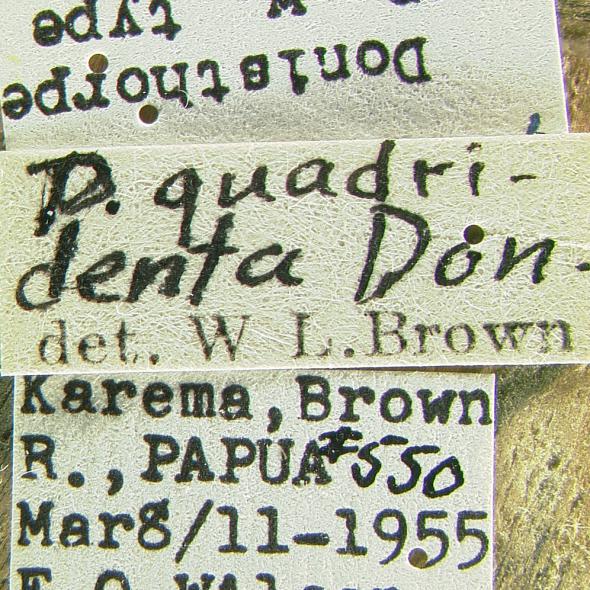 Donisthorpe
type
P. quadri-
denta Don-
det. W L. Brown
Karema, Brown
R., PAPUA #550
Mar8/11-1955
E.O. Wilson